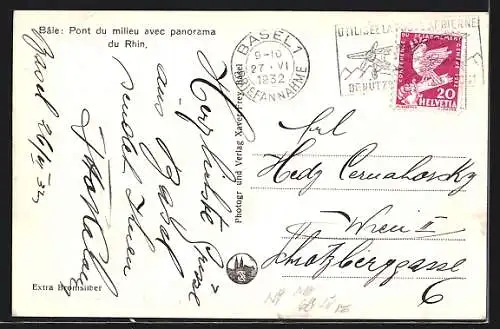 Bâle: Pont du milieu avec panorama
du Rhin.
BASEL 1
9-10
27·VI
1932
BRIEFANNAHME
UTILISEZ LA POSTE AERIENNE
CONFERENCE DU DESARMEMENT GENEVE 1932
20
HELVETIA
Basel 26/6 32
Herzliche Grüsse
aus Basel
sendet Ihnen
Photogr und Verlag Xaver Frey, Basel
Frl
Hedy Cernahorsky
Wien II
6
Extra Bromsilber